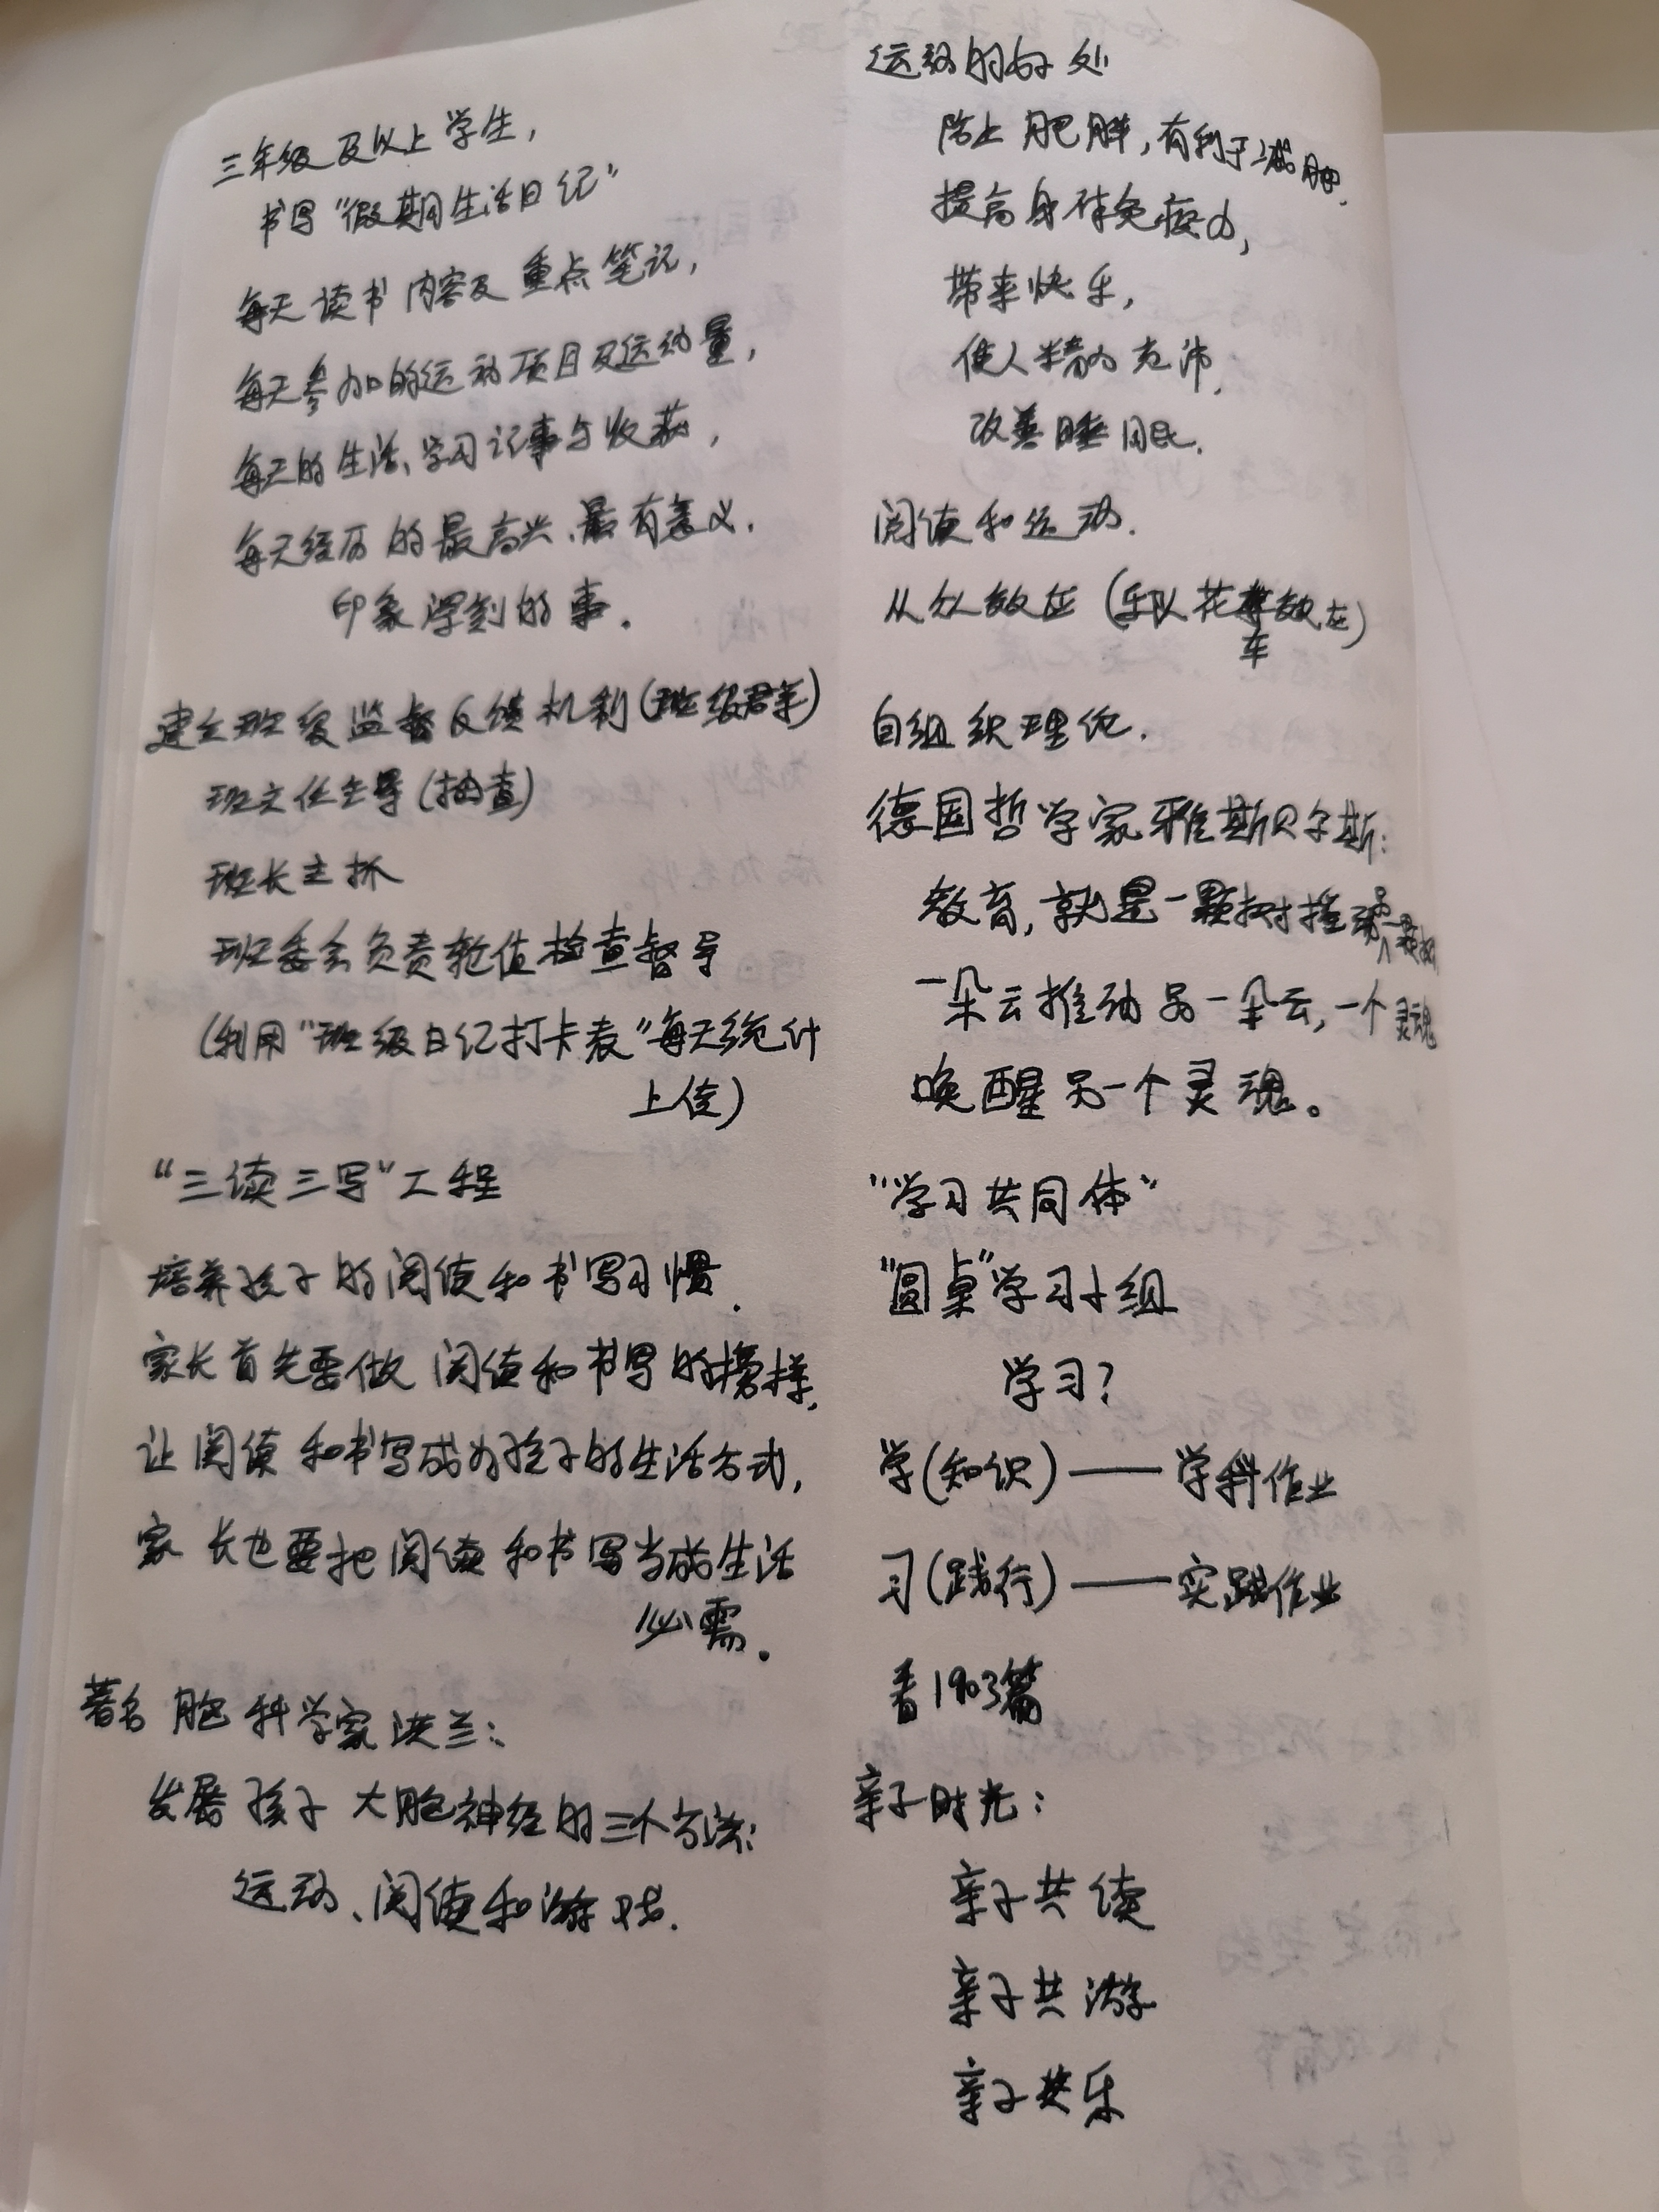 三年级及以上学生,
书写“假期生活日记”
每天读书内容及重点笔记,
每天参加的运动项目及运动量,
每天的生活、学习记事与收获,
每天经历的最高兴、最有意义.
印象深刻的事.
建立班级监督反馈机制(班级群)
班主任主导(抽查)
班长主抓
班委会负责轮值检查督导
(利用“班级日记打卡表”每天统计
上传)
“三读三写”工程
培养孩子的阅读和书写习惯.
家长首先要做阅读和书写的榜样,
让阅读和书写成为孩子的生活方式,
家长也要把阅读和书写当成生活
必需.
著名脑科学家洪兰:
发展孩子大脑神经的三个方法:
运动、阅读和游戏.
运动的好处
防止肥胖,有利于减肥.
提高身体免疫力,
带来快乐,
使人精力充沛,
改善睡眠.
阅读和运动.
从众效应(乐队花车效应)
自组织理论.
德国哲学家雅斯贝尔斯:
教育,就是一颗树摇动另一颗树
一朵云推动另一朵云,一个灵魂
唤醒另一个灵魂。
“学习共同体”
“圆桌”学习小组
学习?
学(知识)——学科作业
习(践行)——实践作业
看1903篇
亲子时光:
亲子共读
亲子共游
亲子共乐